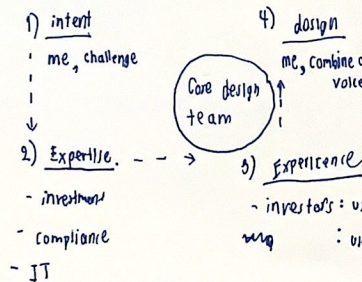 1) intent
me, challenge
2) Expertise.
- investment
- compliance
- IT
Core design
team
4) design
me, combine
voice
3) Experience
- investors : u
: u